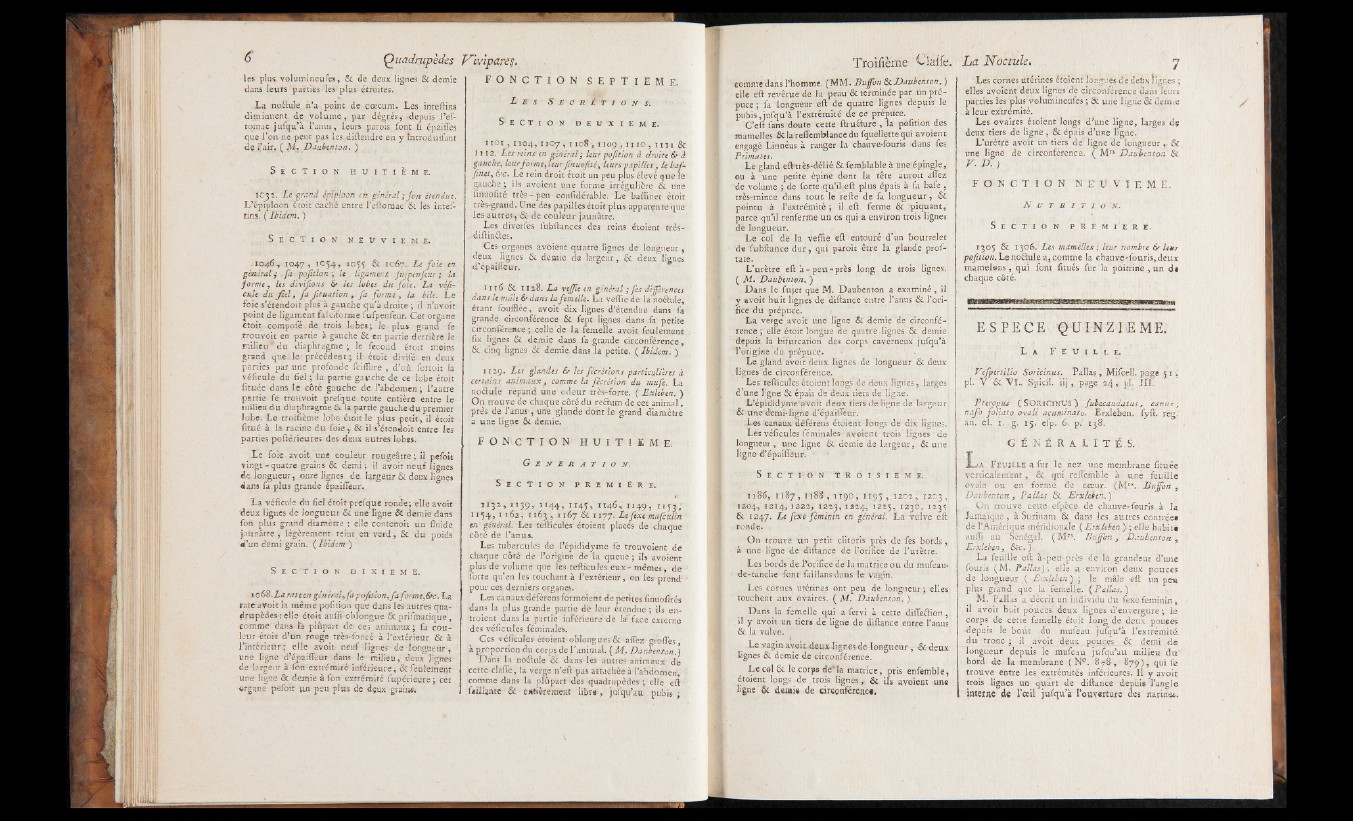 6 Quadrupèdes Vivipares.
les plus volumineuſes, & de deux lignes & demie
dans leurs parties les plus étroites.
La noctule n'a point de cœcum. Les inteſtins
diminuent de volume, par dégrés, depuis l'eſ-
tomac juſqu'à l'anus, leurs parois ſont ſi épaiſſes
que l'on ne peut pas les diſtendre en y introduiſant
de l'air. ( M. Daubenton. )
SECTION HUITIÈME.
1032. Le grand épiploon en général ; ſon étendue.
L'épiploon étoit caché entre l'eſtomac & les inteſ-
tins. ( Ibidem. )
SECTION NEUVIEME.
1046, 1047, 1054, 1055 & 1067. Le foie en
général ; ſa poſition ; le ligament ſuſpenſeur ; la
forme, les diviſions & les lobes du foie. La véſi-
cule du fiel, ſa ſituation, ſa forme, la bile. Le
foie s'étendoit plus à gauche qu'à droite ; il n'avoit
point de ligament falciforme ſuſpenſeur. Cet organe
étoit compoſé de trois lobes ; le plus grand ſe
trouvoit en partie à gauche & en partie derrière le
milieu du diaphragme ; le ſecond étoit moins
grand que le précédent ; il étoit diviſé en deux
parties par une profonde ſciſſure, d'où ſortoit la
véſicule du fiel ; la partie gauche de ce lobe étoit
ſituée dans le côté gauche de l'abdomen ; l'autre
partie ſe trouvoit preſque toute entière entre le
milieu du diaphragme & la partie gauche du premier
lobe. Le troiſième lobe étoit le plus petit, il étoit
ſitué à la racine du foie, & il s'étendoit entre les
parties poſtérieures des deux autres lobes.
Le foie avoit une couleur rougeâtre ; il peſoit
vingt-quatre grains & demi ; il avoit neuf lignes
de longueur, onze lignes de largeur & deux lignes
dans ſa plus grande épaiſſeur.
La véſicule du fiel étoit preſque ronde ; elle avoit
deux lignes de longueur & une ligne & demie dans
ſon plus grand diamètre : elle contenoit un fluide
jaunâtre, légèrement teint en verd, & du poids
d'un demi grain. ( Ibidem )
SECTION DIXIEME.
1068. La rate en général, ſa poſition, ſa forme, &c. La
rate avoit la même poſition que dans les autres qua-
drupèdes : elle étoit auſſi oblongue & priſmatique,
comme dans la plûpart de ces animaux ; ſa cou-
leur étoit d'un rouge très-foncé à l'extérieur & à
l'intérieur ; elle avoit neuf lignes de longueur,
une ligne d'épaiſſeur dans le milieu, deux lignes
de largeur à ſon extrémité inférieure, & ſeulement
une ligne & demie à ſon extrémité ſupérieure ; cet
organe peſoit un peu plus de deux grains.
FONCTION SEPTIEME.
LES SECRÉTIONS.
SECTION DEUXIEME.
1101, 1104, 1107, 1108, 1109, 1110, 1111 &
1112. Les reins en général ; leur poſition à droite & à
gauche, leur forme, leur ſinuoſité, leurs papilles, le baſ-
ſinet, &c. Le rein droit étoit un peu plus élevé que le
gauche ; ils avoient une forme irrégulière & une
ſinuoſité très-peu conſidérable. Le baſſinet étoit
très-grand. Une des papilles étoit plus apparente que
les autres, & de couleur jaunâtre.
Les diverſes ſubſtances des reins étoient très-
diſtinctes.
Ces organes avoient quatre lignes de longueur,
deux lignes & demie de largeur, & deux lignes
d'épaiſſeur.
1116 & 1128. La veſſie en général ; ſes différences
dans le mâle & dans la femelle. La veſſie de la noctule,
étant ſoufflée, avoit dix lignes d'étendue dans ſa
grande circonférence & ſept lignes dans ſa petite
circonférence ; celle de la femelle avoit ſeulement
ſix lignes & demie dans ſa grande circonférence,
& cinq lignes & demie dans la petite. ( Ibidem. )
1129. Les glandes & les ſécrétions particulières à
certains animaux, comme la ſécrétion du muſc. La
noctule répand une odeur très-forte. ( Erxleben. )
On trouve de chaque côté du rectum de cet animal,
près de l'anus, une glande dont le grand diamètre
a une ligne & demie.
FONCTION HUITIEME.
GENERATION.
SECTION PREMIÈRE.
1132, 1139, 1144, 1145, 1146, 1149, 1153,
1154, 1162, 1163, 1167 & 1177. Le ſexe maſculin
en général. Les teſticules étoient placés de chaque
côté de l'anus.
Les tubercules de l'épididyme ſe trouvoient de
chaque côté de l'origine de la queue ; ils avoient
plus de volume que les teſticules eux-mêmes, de
ſorte qu'en les touchant à l'extérieur, on les prend
pour ces derniers organes.
Les canaux déférens formoient de petites ſinuoſités
dans la plus grande partie de leur étendue ; ils en-
troient dans la partie inférieure de la face externe
des véſicules ſéminales.
Ces véſicules étoient oblongues & aſſez groſſes,
à proportion du corps de l'animal. ( M. Daubenton. )
Dans la noctule & dans les autres animaux de
cette claſſe, la verge n'eſt pas attachée à l'abdomen,
comme dans la plûpart des quadrupèdes ; elle eſt
ſaillante & entièrement libre, juſqu'au pubis ;
Troiſième Claſſe. La Noctule. 7
comme dans l'homme. (MM. Buffon & Daubenton. )
elle eſt revêtue de la peau & terminée par un pré-
puce ; ſa longueur eſt de quatre lignes depuis le
pubis, juſqu'à l'extrémité de ce prépuce.
C'eſt ſans doute cette ſtructure, la poſition des
mamelles & la reſſemblance du ſquelette qui avoient
engagé Linnéus à ranger la chauve-ſouris dans ſes
Primates.
Le gland eſt très-délié & ſemblable à une épingle,
ou à une petite épine dont la tête auroit aſſez
de volume ; de ſorte qu'il eſt plus épais à ſa baſe,
très-mince dans tout le reſte de ſa longueur, &
pointu à l'extrémité ; il eſt ferme & piquant,
parce qu'il renferme un os qui a environ trois lignes
de longueur.
Le col de la veſſie eſt entouré d'un bourrelet
de ſubſtance dur, qui paroît être la glande proſ-
tate.
L'urètre eſt à-peu-près long de trois lignes.
( M. Daubenton. )
Dans le ſujet que M. Daubenton a examiné, il
y avoit huit lignes de diſtance entre l'anus & l'ori-
fice du prépuce.
La verge avoit une ligne & demie de circonfé-
rence ; elle étoit longue de quatre lignes & demie
depuis la bifurcation des corps caverneux juſqu'à
l'origine du prépuce.
Le gland avoit deux lignes de longueur & deux
lignes de circonférence.
Les teſticules étoient longs de deux lignes, larges
d'une ligne & épais de deux tiers de ligne.
L'épididyme avoit deux tiers de ligne de largeur
& une demi-ligne d'épaiſſeur.
Les canaux déférens étoient longs de dix lignes.
Les véſicules ſéminales avoient trois lignes de
longueur, une ligne & demie de largeur, & une
ligne d'épaiſſeur.
SECTION TROISIEME.
1186, 1187, 1188, 1190, 1195, 1202, 1203,
1204, 1214, 1222, 1223, 1224, 1225, 1230, 1235
& 1247. Le ſexe féminin en général. La vulve eſt
ronde.
On trouve un petit clitoris près de ſes bords,
à une ligne de diſtance de l'orifice de l'urètre.
Les bords de l'orifice de la matrice ou du muſeau-
de-tanche ſont ſaillans dans le vagin.
Les cornes utérines ont peu de longueur ; elles
touchent aux ovaires. ( M. Daubenton. )
Dans la femelle qui a ſervi à cette diſſection,
il y avoit un tiers de ligne de diſtance entre l'anus
& la vulve.
Le vagin avoit deux lignes de longueur, & deux
lignes & demie de circonférence.
Le col & le corps de la matrice, pris enſemble,
étoient longs de trois lignes, & ils avoient une
ligne & demie de circonférence.
Les cornes utérines étoient longues de deux lignes ;
elles avoient deux lignes de circonférence dans leurs
parties les plus volumineuſes ; & une ligne & demie
à leur extrémité.
Les ovaires étoient longs d'une ligne, larges de
deux tiers de ligne, & épais d'une ligne.
L'urètre avoit un tiers de ligne de longueur, &
une ligne de circonférence. ( Mrs Daubenton &
V. D. )
FONCTION NEUVIEME.
NUTRITION.
SECTION PREMIERE.
1305 & 1306. Les mamelles ; leur nombre & leur
poſition. Le noctule a, comme la chauve-ſouris, deux
mamelons, qui ſont ſitués ſur la poitrine, un de
chaque côté.
ESPECE QUINZIEME.
LA FEUILLE.
Veſpertilio Soricinus. Pallas, Miſcell. page 51,
pl. V & VI. Spicil. iij, page 24, pl. III.
Pteropus (SORICINUS) ſubacaudatus, canus,
naſo foliato ovali acuminato. Erxleben. ſyſt. reg.
an. cl. 1. g. 15. eſp. 6. p. 138.
GÉNÉRALITÉS.
LA FEUILLE a ſur le nez une membrane ſituée
verticalement, & qui reſſemble à une feuille
ovale ou en forme de cœur. (Mrs. Buffon,
Daubenton, Pallas & Erxleben.)
On trouve cette eſpèce de chauve-ſouris à la
Jamaïque, à Surinam & dans les autres contrées
de l'Amérique méridionale ( Erxleben ) ; elle habite
auſſi au Sénégal. (Mrs. Buffon, Daubenton,
Erxleben, &c. )
La feuille eſt à-peu-près de la grandeur d'une
ſouris ( M. Pallas ). elle a environ deux pouces
de longueur ( Erxleben ) ; le mâle eſt un peu
plus grand que la femelle. ( Pallas. )
M. Pallas a décrit un individu du ſexe féminin,
il avoit huit pouces deux lignes d'envergure ; le
corps de cette femelle étoit long de deux pouces
depuis le bout du muſeau juſqu'à l'extrémité
du tronc ; il avoit deux pouces & demi de
longueur depuis le muſeau juſqu'au milieu du
bord de la membrane ( N°. 878, 879), qui ſe
trouve entre les extrémités inférieures. Il y avoit
trois lignes un quart de diſtance depuis l'angle
interne de l'œil juſqu'à l'ouverture des narines.